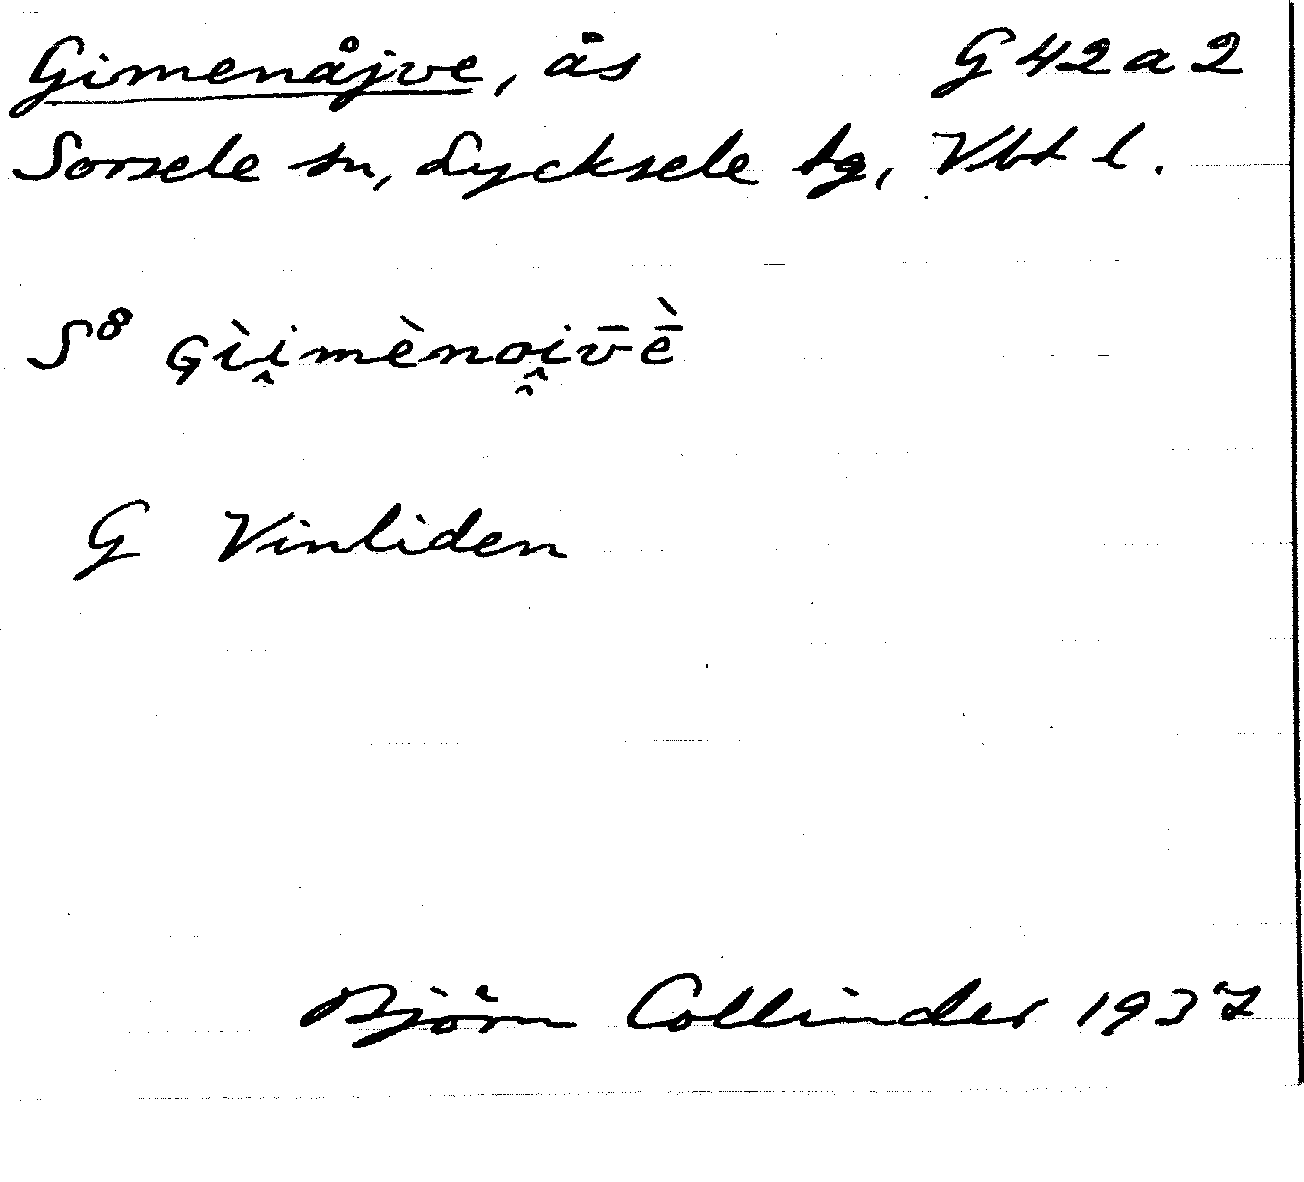 Gimenåjve, ås G 42 a 2
Sorsele sn, Lycksele tg, Vbt l.
S⁸ Gìi̭mènoi̭v̄ḕ
G Vinliden
Björn Collinder 1937